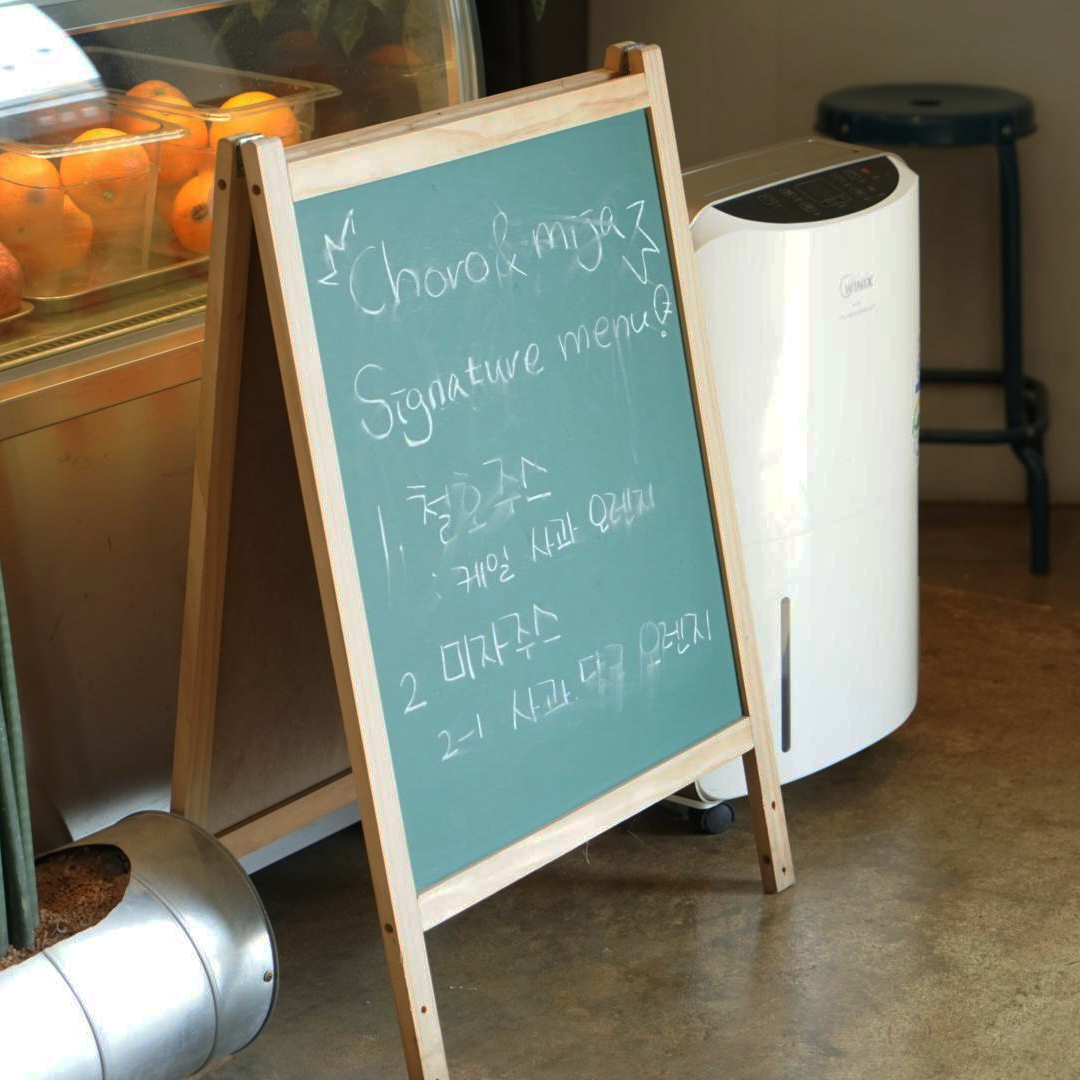 Choro & mija
Signature menu!
1. 철호주스
: 케일 사과 오렌지
2 미자주스
2-1 사과. 당근 오렌지
WINIX